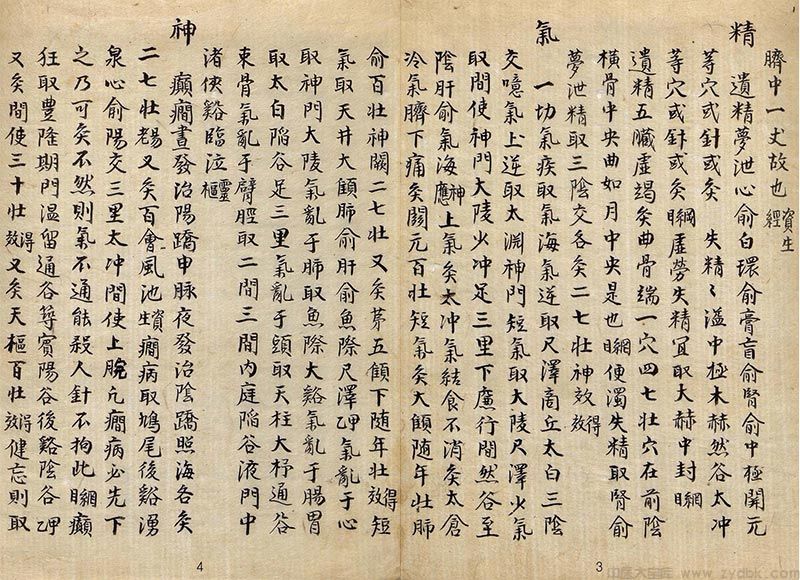 臍中一丈故也資生經
精
遺精夢泄心俞白環俞膏肓俞腎俞中極關元
等穴或針或灸　失精〻溢中極大赫然谷太冲
等穴或針或灸綱虛勞失精宜取大赫中封綱
遺精五臟虛竭灸曲骨端一穴四七壯穴在前陰
橫骨中央曲如月中央是也綱便濁失精取腎俞
夢泄精取三陰交各灸二七壯神效得效
氣
一切氣疾取氣海氣逆取尺澤商丘太白三陰
交噫氣上逆取太渊神門短氣取大陵尺澤少氣
取間使神門大陵少冲足三里下廉行間然谷至
陰肝俞氣海神應上氣灸太冲氣結食不消灸太倉
冷氣臍下痛灸關元百壯短氣灸大顀随年壯肺
3
俞百壯神闕二七壯又灸苐五顀下随年壯得效短
氣取天井大顀肺俞肝俞魚際尺澤甲乙氣亂于心
取神門大陵氣亂于肺取魚際大谿氣亂于腸胃
取太白陷谷足三里氣亂于頭取天柱大杼通谷
束骨氣亂于臂脛取二間三間內庭陷谷液門中
渚俠谿臨泣靈樞
神
癲癇晝發治陽蹻申脉夜發治陰蹻照海各灸
二七壯易老又灸百會風池資生癇病取鳩尾後谿湧
泉心俞陽交三里太冲間使上脘凡癇病必先下
之乃可灸不然則氣不通能殺人針不拘此綱癲
狂取豊隆期門溫留通谷筑賓陽谷後谿陰谷甲乙
又灸間使三十壯得效又灸天樞百壯得效健忘則取
4
www.zydbk.com